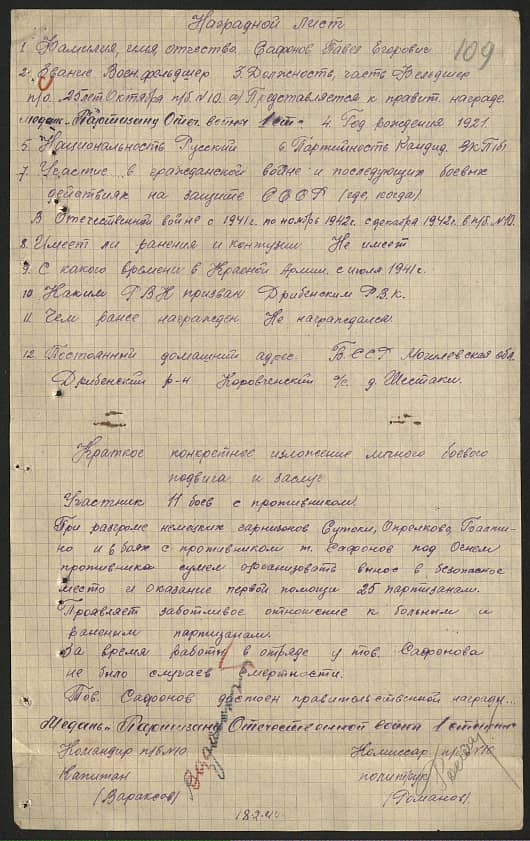 Наградной лист
109
1. Фамилия, имя, отчество Сафонов Павел Егорович
2. Звание Воен.фельдшер 3. Должность, часть Фельдшер
п/о. 25 лет Октября п/б. №10. а) Представляется к правит. награде.
медаль „Партизану Отеч. войны 1 ст." 4. Год рождения 1921.
5. Национальность Русский 6. Партийность Кандид. ВКП/б/
7. Участие в гражданской войне и последующих боевых
действиях на защите СССР (где, когда)
В Отечественной войне с 1941г. по ноябрь 1942г. с декабря 1942г. в п/б. №10.
8. Имеет ли ранения и контузии Не имеет
9. С какого времени в Красной Армии. с июля 1941г.
10. Каким РВК призван Дрибенским Р.В.К.
11. Чем ранее награжден Не награждался
12. Постоянный домашний адрес. БССР Могилевская обл.
Дрибенский р-н Коровченский с/с. д. Шестаки.
Краткое конкретное изложение личного боевого
подвига и заслуг
Участник 11 боев с противником.
При разгроме немецких гарнизонов Сутоки, Опрелково,
но и в боях с противником т. Сафонов под Огнем
противника сумел организовать вынос в безопасное
место и оказание первой помощи 25 партизанам.
Проявляет заботливое отношение к больным и
раненым партизанам.
За время работы в отряде у тов. Сафонова
не было случаев смертности.
Тов. Сафонов достоен правительственной награды...
Медаль „Партизану Отечественной война 1 степени
Командир п/б №10 Комиссар п/б №10
Капитан политрук
(Вараксов) (Романов).
18.2.44